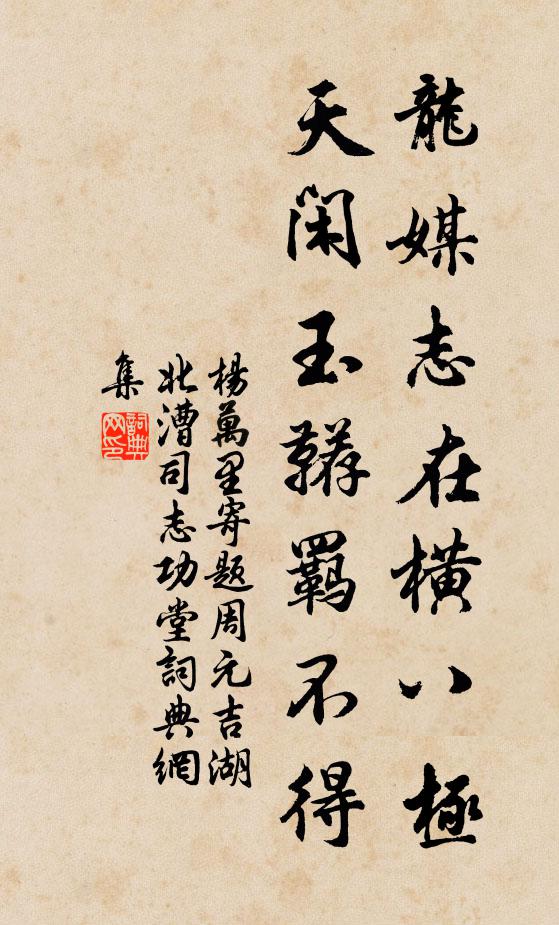 龍媒志在橫八極
天閑玉鞯羈不得
楊萬里寄題周元吉湖
北漕司志功堂詞典網
集
詞典
网印